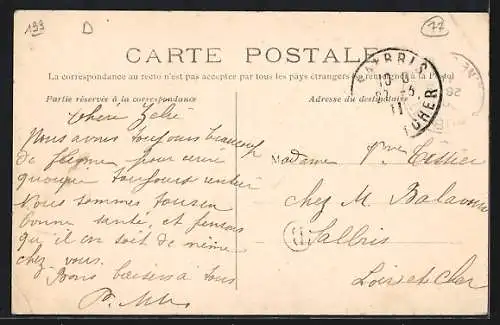 199
D
77
CARTE POSTALE
La correspondance au recto n'est pas acceptée par tous les pays étrangers
Partie réservée à la correspondance
Adresse du destinataire
CHER
Chère Zélie
Nous avons toujours beaucoup
de flegme pour écrire
quoique toujours
Nous sommes tous en
bonne santé, et pensons
qu'il en soit de même
chez vous.
Bons baisers a tous
Madame Vve Tessier
chez M.
Salbris
Loir et Cher